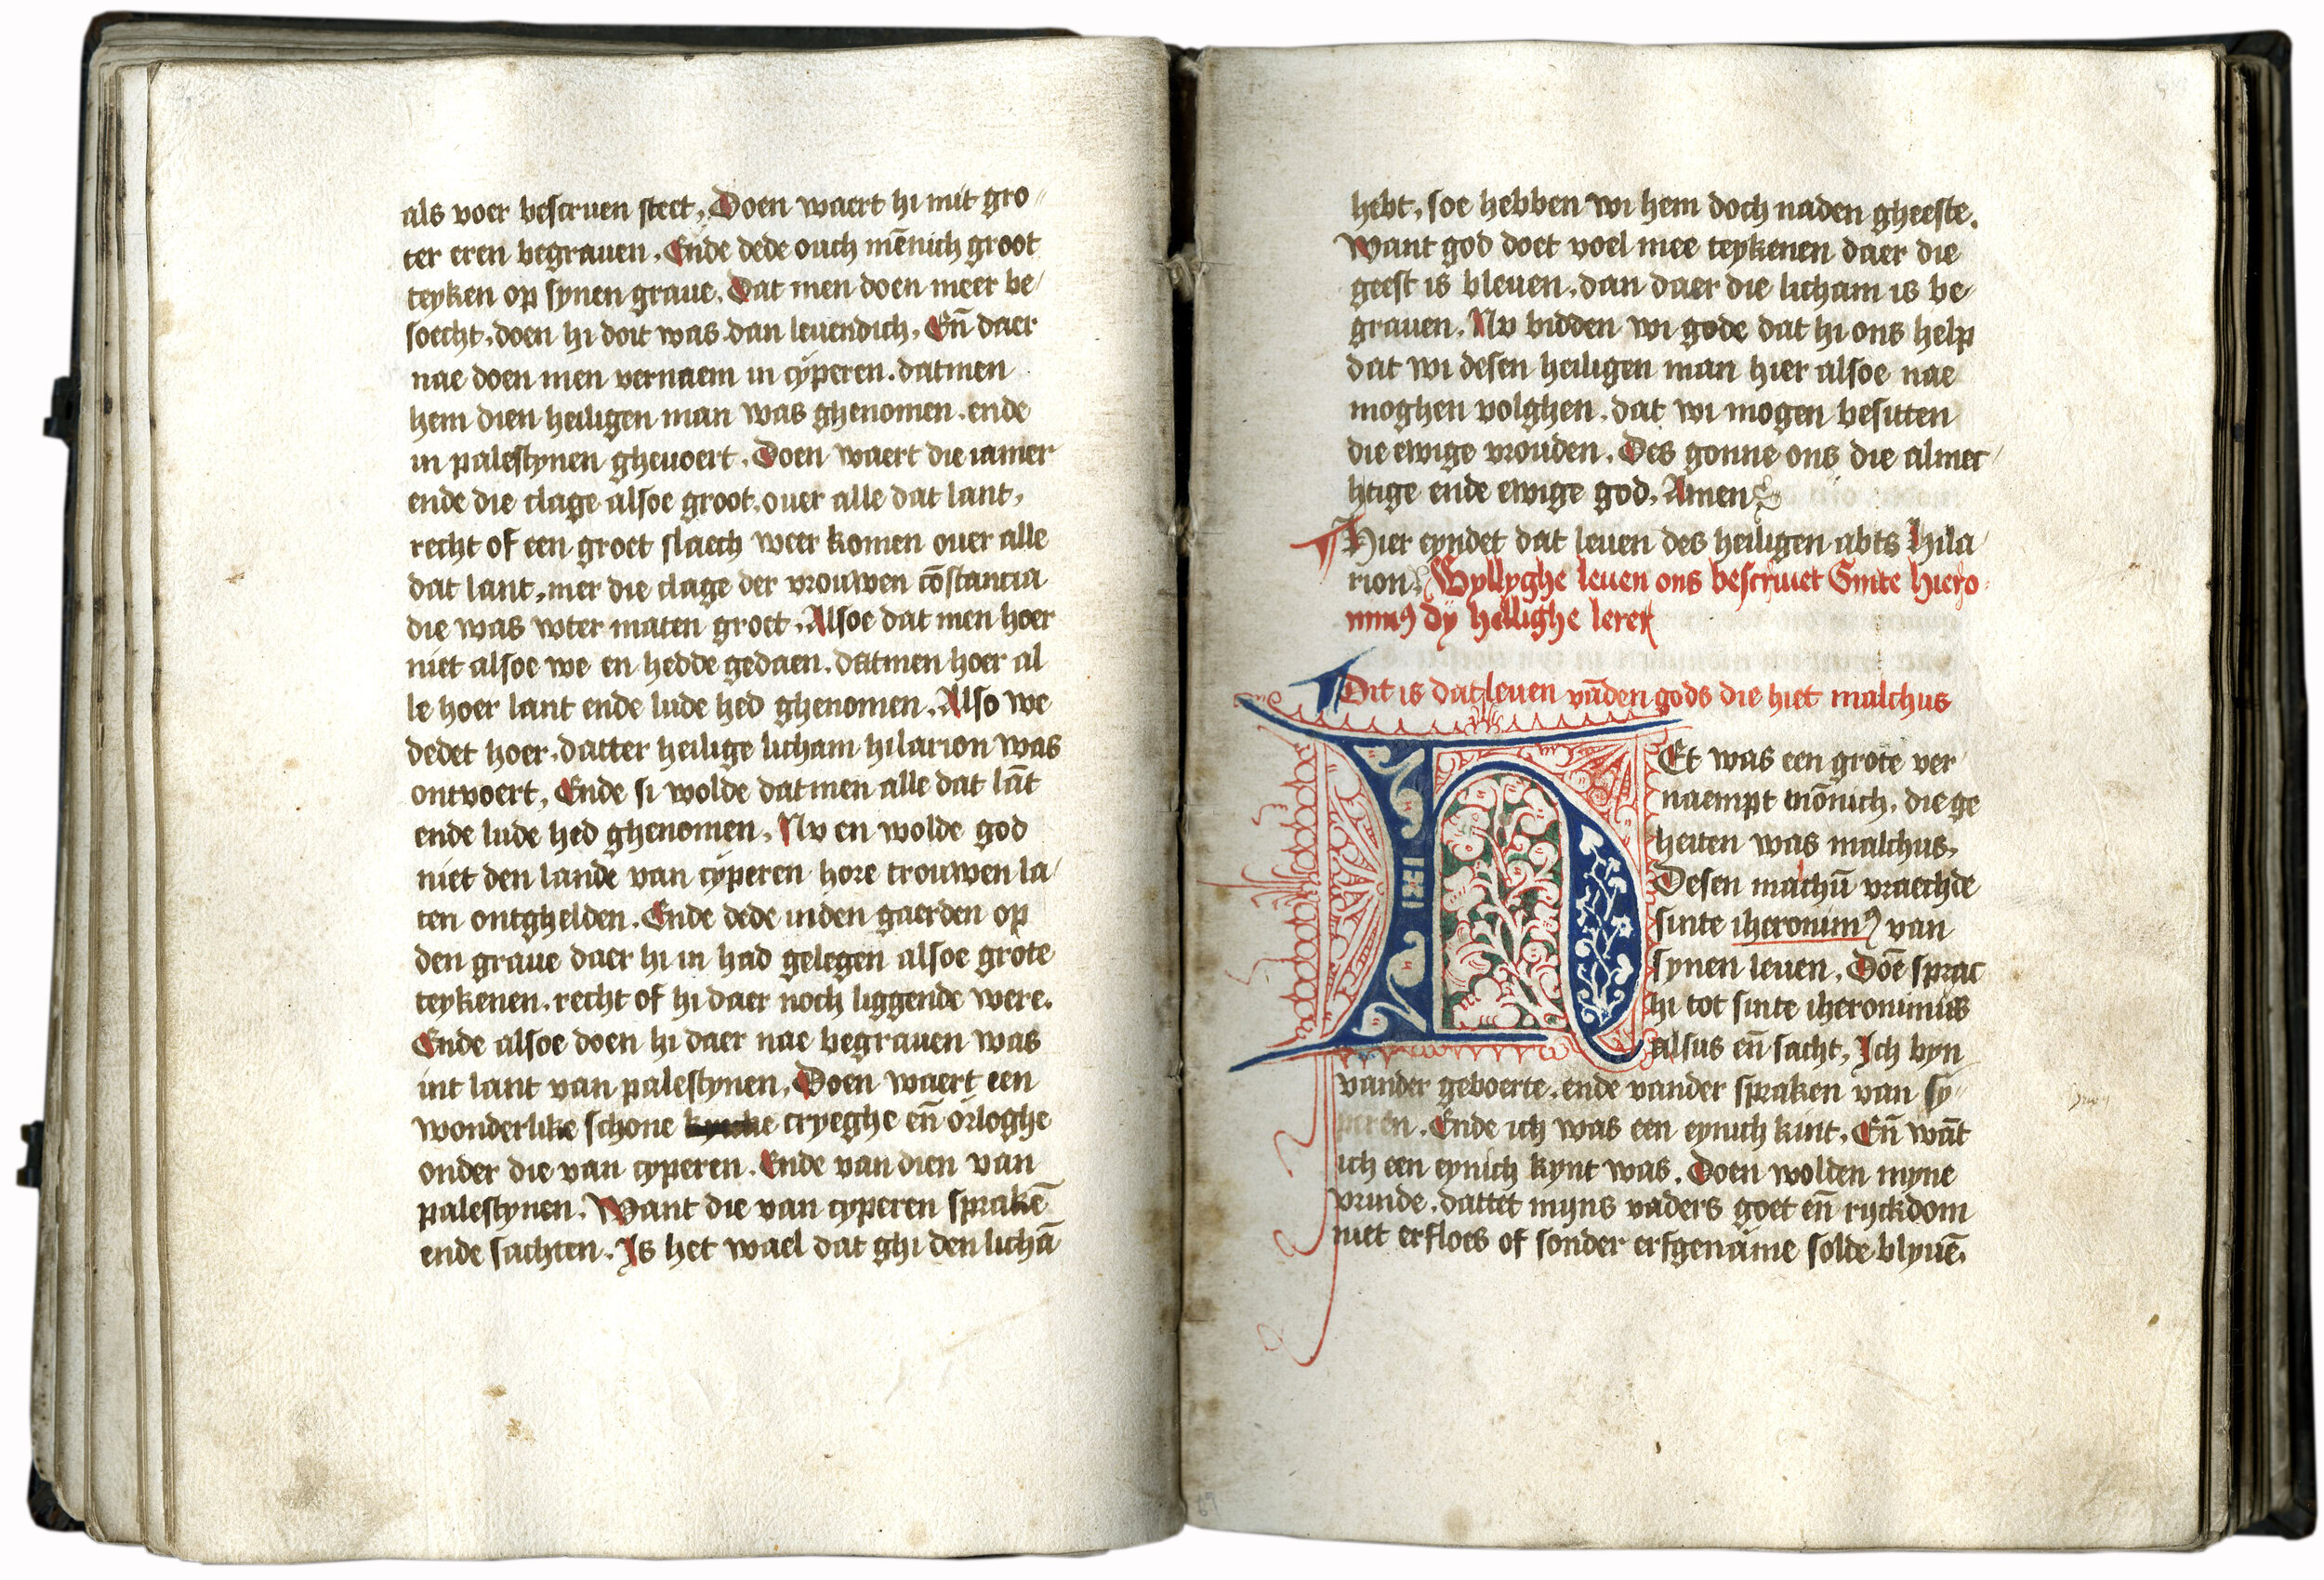 als voer bescruen steet, Doen waert hi mit gro
ter eren begrauen. Ende dede ouch mēnich groot
teyken op synen graue. Dat men doen meer be
soecht. doen hi doit was. dan leuendich. En̄ daer
nae doen men vernaem in cyperen. datmen
hem dien heiligen man was ghenomen. ende
in palestynen gheuoert. Doen waert die iamer
ende die clage alsoe groot. ouer alle dat lant,
recht of een groet slaech weer komen ouer alle
dat lant, mer die clage der vrouwen cōstantia
die was wter maten groet. Alsoe dat men hoer
niet alsoe we en hedde gedaen. datmen hoer al
le hoer lant ende lude hed ghenomen. Also we
dedet hoer. datter heilige licham hilarion was
ontvoert, Ende si wolde datmen alle dat lāt
ende lude hed ghenomen. Nv en wolde god
niet den lande van cyperen hore trouwen la
ten ontghelden. Ende dede inden gaerden op
den graue daer hi in had gelegen alsoe grote
teykenen. recht of hi daer noch liggende were.
Ende alsoe doen hi daer nae begrauen was
int lant van palestynen. Doen waert een
wonderlike schone cryeghe en̄ orloghe
onder die van cyperen. Ende van dien van
palestynen. Want die van cyperen sprakē
ende sachten. Is het wael dat ghi den lichā
hebt, soe hebben wi hem doch naden gheeste.
Want god doet voel mee teykenen daer die
geest is bleuen. dan daer die licham is be
grauen. Nv bidden wi gode dat hi ons help
dat wi desen heiligen man hier alsoe nae
moghen volghen. dat wi mogen besitten
die ewige vrouden. Des gonne ons die almec
htige ende ewige god. Amen
Hier eyndet dat leuen des heiligen abts hila
rion. Wyllyghe leuen ons bescriuet Sinte hiero
nimꝰ dy heillighe lerer
Dit is dat leuen vāden gods die hiet malchus
HEt was een grote ver
naempt mōnich. die ge
heiten was malchus.
Desen malchū vraechde
sinte iheronimꝰ van
synen leuen. Doē sprac
hi tot sinte iheronimus
alsus en̄ sacht, Ich byn
vander geboerte. ende vander spraken van sy
peren. Ende ich was een eynich kint. En̄ wāt
ich een eynich kynt was. Doen wolden myne
vrunde. dattet myns vaders goet en̄ ryckdom
niet erfloes of sonder erfgename solde blyuē.